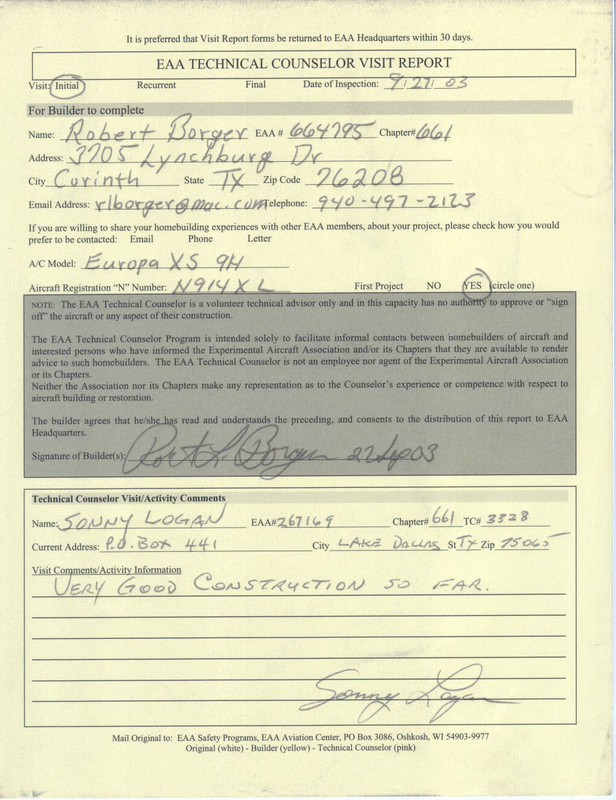 It is preferred that Visit Report forms be returned to EAA Headquarters within 30 days.
EAA TECHNICAL COUNSELOR VISIT REPORT
Visit: Initial Recurrent Final Date of Inspection: 9/27/03
For Builder to complete
Name: Robert Borger EAA # 664795 Chapter# 661
Address: 3705 Lynchburg Dr
City Corinth State TX Zip Code 76208
Email Address: rlborger@mac.com Telephone: 940-497-2123
If you are willing to share your homebuilding experiences with other EAA members, about your project, please check how you would
prefer to be contacted: Email Phone Letter
A/C Model: Europa XS 9H
Aircraft Registration "N" Number: N914XL First Project NO YES (circle one)
NOTE: The EAA Technical Counselor is a volunteer technical advisor only and in this capacity has no authority to approve or "sign
off" the aircraft or any aspect of their construction.
The EAA Technical Counselor Program is intended solely to facilitate informal contacts between homebuilders of aircraft and
interested persons who have informed the Experimental Aircraft Association and/or its Chapters that they are available to render
advice to such homebuilders. The EAA Technical Counselor is not an employee nor agent of the Experimental Aircraft Association
or its Chapters.
Neither the Association nor its Chapters make any representation as to the Counselor's experience or competence with respect to
aircraft building or restoration.
The builder agrees that he/she has read and understands the preceding, and consents to the distribution of this report to EAA
Headquarters.
Signature of Builder(s): Robert L. Borger 27Sep03
Technical Counselor Visit/Activity Comments
Name: SONNY LOGAN EAA# 267169 Chapter# 661 TC# 3328
Current Address: P.O. BOX 441 City LAKE DALLAS St TX Zip 75065
Visit Comments/Activity Information
VERY GOOD CONSTRUCTION SO FAR.
Sonny Logan
Mail Original to: EAA Safety Programs, EAA Aviation Center, PO Box 3086, Oshkosh, WI 54903-9977
Original (white) - Builder (yellow) - Technical Counselor (pink)